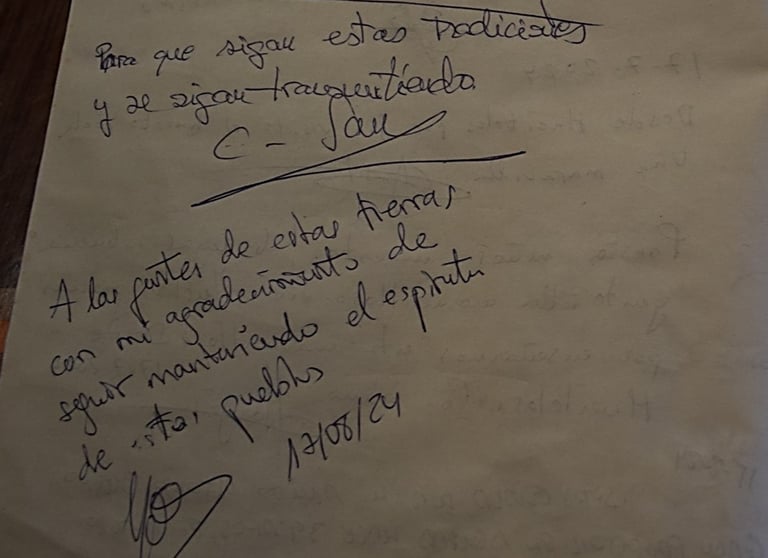 Para que sigan estas tradiciones
y se sigan transmitiendo.
C - San
A las gentes de estas tierras
con mi agradecimiento de
seguir manteniendo el espiritu
de estos pueblos
17/08/24